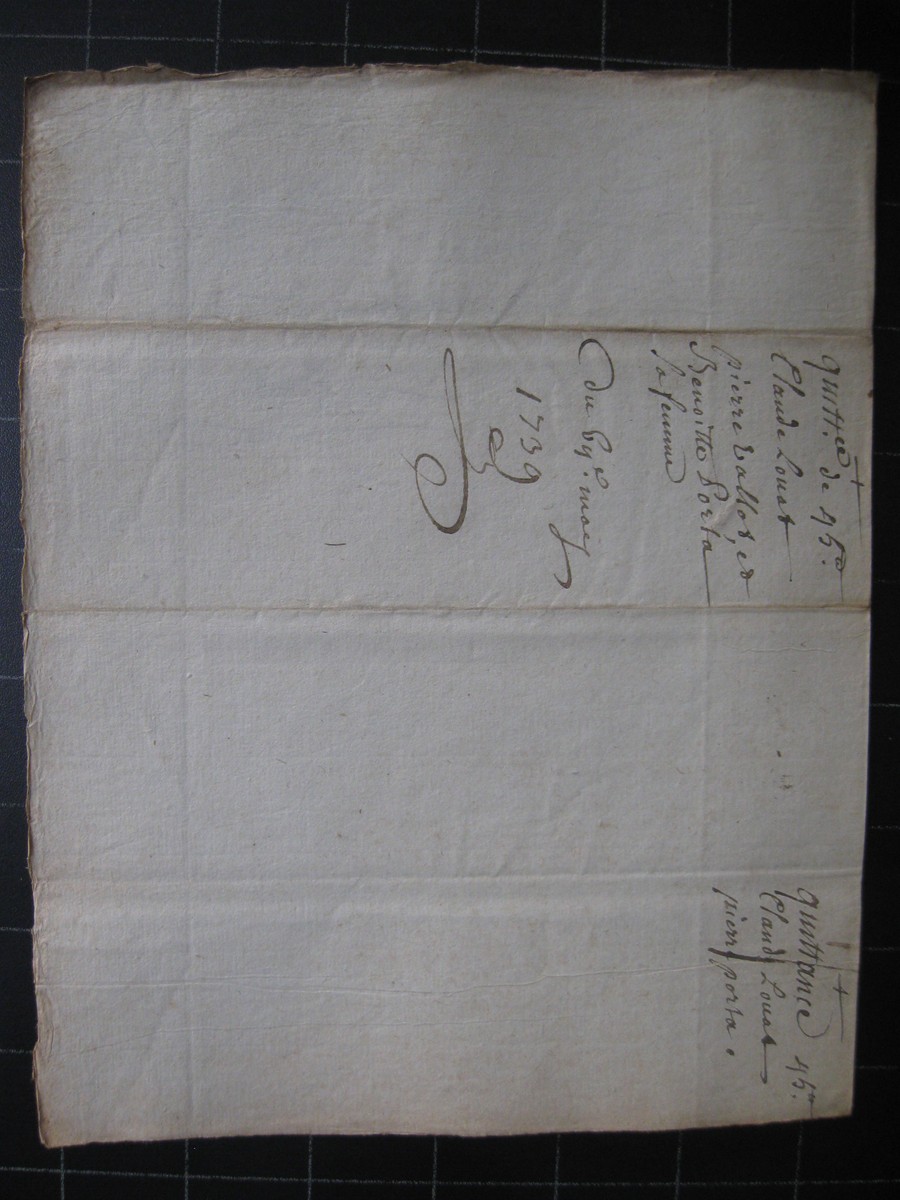 quitt.ce de 45.#
Claude Louat
pierre Vallot, et
Benoitte Porta
sa femme
Du may
1739
quittance 45.#
Claude Louat
pierre porta.